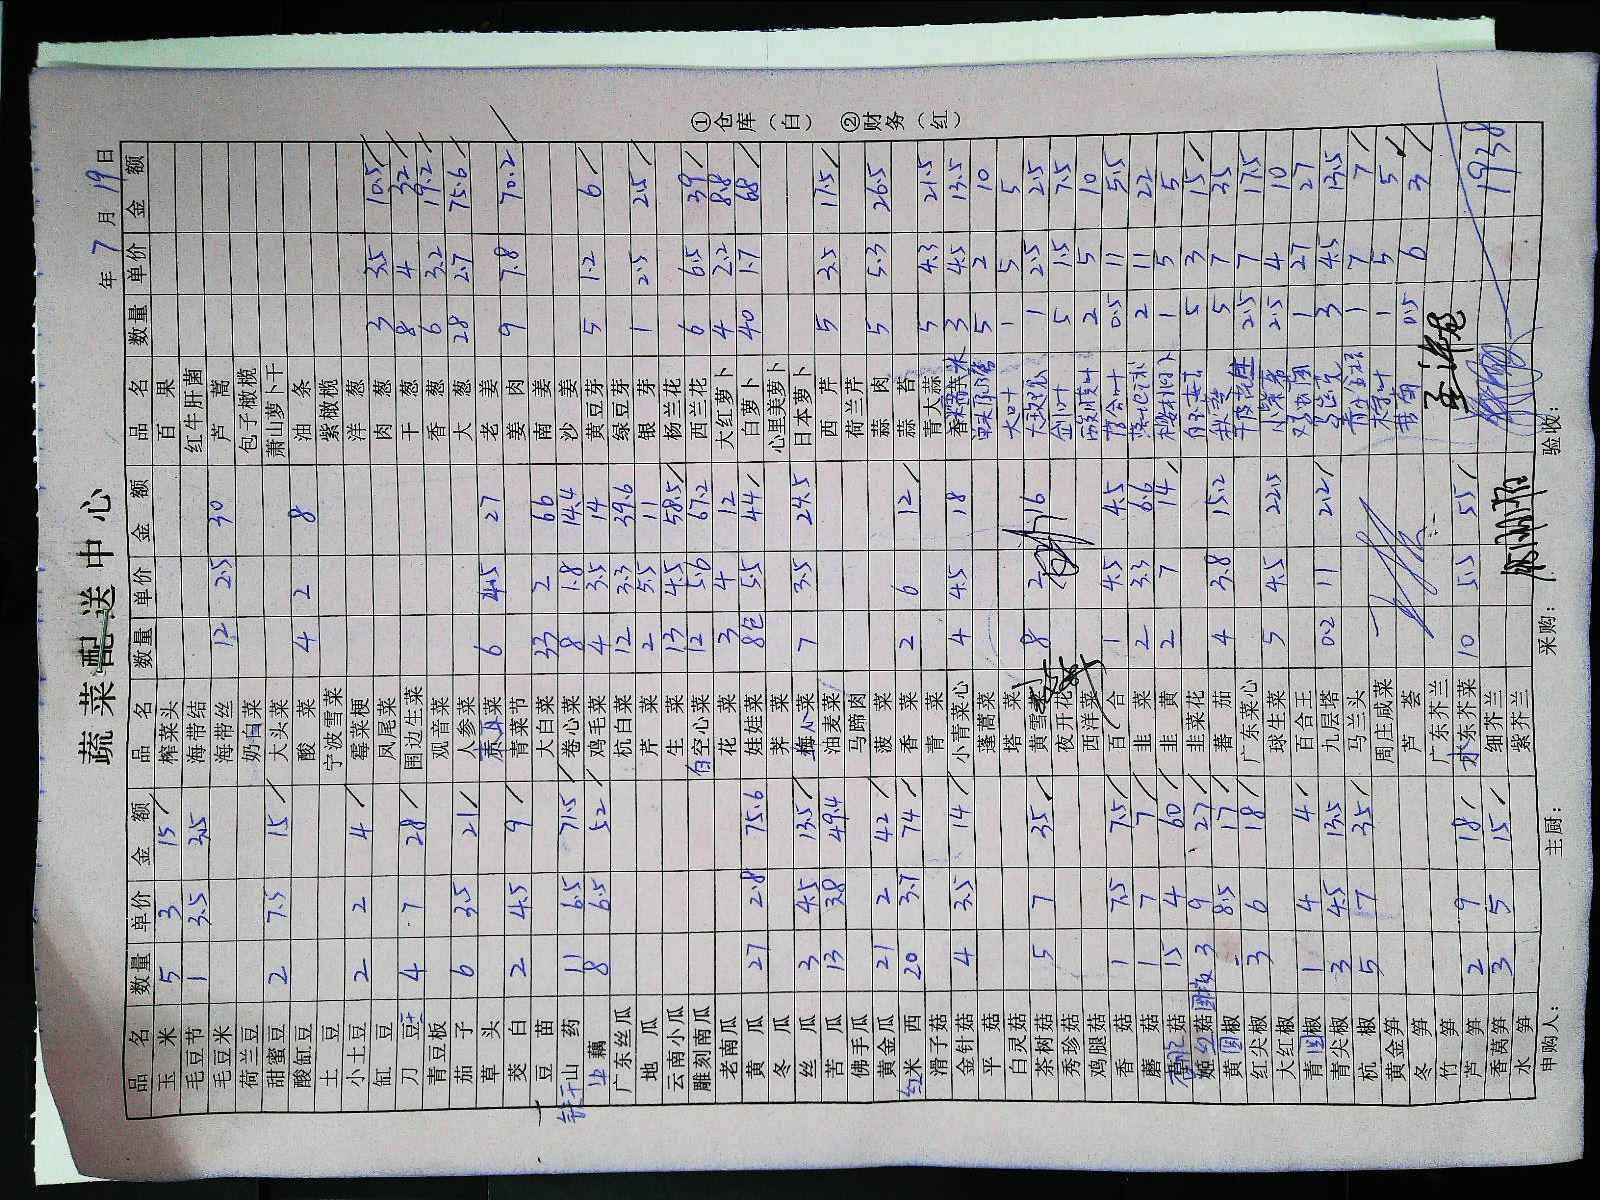 蔬菜配送中心
年 7 月 19 日
品名 数量 单价 金额 品名 数量 单价 金额 品名 数量 单价 金额
玉米 5 3 15 榨菜头 百果
毛豆节 1 3.5 3.5 海带结 红牛肝菌
毛豆米 海带丝 12 2.5 30 芦蒿
荷兰豆 奶白菜 包子橄榄
甜蜜豆 2 7.5 15 大头菜 萧山萝卜干
酸缸豆 酸菜 4 2 8 油条
土豆 宁波雪菜 紫橄榄
小土豆 2 2 4 霉菜梗 洋葱
缸豆 凤尾菜 肉葱 3 3.5 10.5
刀豆 4 7 28 围边生菜 干葱 8 4 32
青豆板 观音菜 香葱 6 3.2 19.2
茄子 6 3.5 21 人参菜 大葱 28 2.7 75.6
草头 菜 6 4.5 27 老姜
茭白 2 4.5 9 青菜节 姜肉 9 7.8 70.2
豆苗 大白菜 33 2 66 南姜
铁干山药 11 6.5 71.5 卷心菜 8 1.8 14.4 沙姜
藕 8 6.5 52 鸡毛菜 4 3.5 14 黄豆芽 5 1.2 6
广东丝瓜 杭白菜 12 3.3 39.6 绿豆芽
地瓜 芹菜 2 5.5 11 银芽 1 2.5 2.5
云南小瓜 生菜 13 4.5 58.5 杨兰花
雕刻南瓜 白空心菜 12 5.6 67.2 西兰花 6 6.5 39
老南瓜 花菜 3 4 12 大红萝卜 4 2.2 8.8
黄瓜 27 2.8 75.6 娃娃菜 8包 5.5 44 白萝卜 40 1.7 68
冬瓜 荠菜 心里美萝卜
丝瓜 3 4.5 13.5 菜 7 3.5 24.5 日本萝卜
苦瓜 13 3.8 49.4 油麦菜 西芹 5 3.5 17.5
佛手瓜 马蹄肉 荷兰芹
黄金瓜 21 2 42 菠菜 蒜肉 5 5.3 26.5
红米西 20 3.7 74 香菜 2 6 12 蒜苔
滑子菇 青菜 青大蒜 5 4.3 21.5
金针菇 4 3.5 14 小青菜心 4 4.5 18 3 4.5 13.5
平菇 蓬蒿菜 5 2 10
白灵菇 塔菜 1 5 5
茶树菇 5 7 35 黄雪菜 8 2 16 1 2.5 2.5
秀珍菇 夜开花 5 1.5 7.5
鸡腿菇 西洋菜 2 5 10
香菇 1 7.5 7.5 百合 1 4.5 4.5 0.5 11 5.5
蘑菇 1 7 7 韭菜 2 3.3 6.6 2 11 22
菇 15 4 60 韭黄 2 7 14 1 5 5
菇 3 9 27 韭菜花 5 3 15
黄圆椒 8.5 17 蕃茄 4 3.8 15.2 秋葵 5 7 35
红尖椒 3 6 18 广东菜心 2.5 7 17.5
大红椒 球生菜 5 4.5 22.5 小紫茄 2.5 4 10
青圆椒 1 4 4 百合王 1 27 27
青尖椒 3 4.5 13.5 九层塔 0.2 11 2.2 3 4.5 13.5
杭椒 5 7 35 马兰头 1 7 7
黄金笋 周庄咸菜 1 5 5
冬笋 芦荟 0.5 6 3
竹笋 广东芥兰
芦笋 2 9 18 水东芥菜 10 5.5 55
香莴笋 3 5 15 细芥兰 1938
水笋 紫芥兰
申购人： 主厨： 采购： 验收：
①仓库（白） ②财务（红）